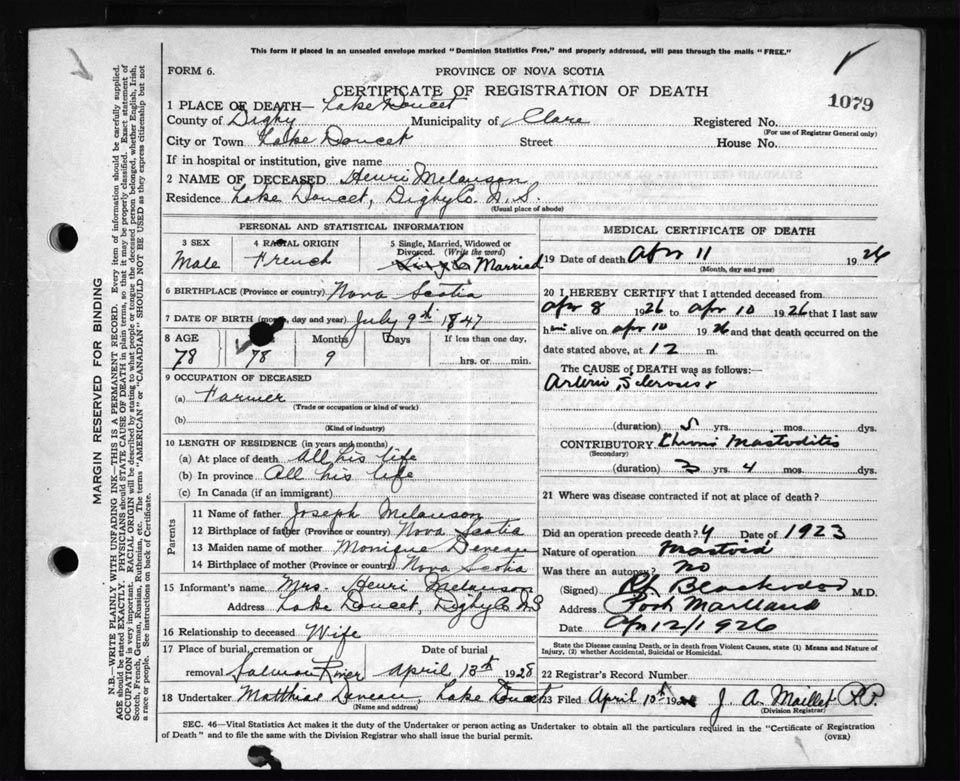 This form if placed in an unsealed envelope marked "Dominion Statistics Free," and properly addressed, will pass through the mails "FREE."
FORM 6.
PROVINCE OF NOVA SCOTIA
CERTIFICATE OF REGISTRATION OF DEATH
1079
1 PLACE OF DEATH— Lake Doucet
County of Digby Municipality of Clare Registered No.
(For use of Registrar General only)
City or Town Lake Doucet Street House No.
If in hospital or institution, give name
2 NAME OF DECEASED Henri Melanson
Residence Lake Doucet, Digby Co. N.S.
(Usual place of abode)
PERSONAL AND STATISTICAL INFORMATION
3 SEX Male
4 RACIAL ORIGIN French
5 Single, Married, Widowed or Divorced. (Write the word) Married
6 BIRTHPLACE (Province or country) Nova Scotia
7 DATE OF BIRTH (month, day and year) July 9th 1847
8 AGE 78 78 Months 9 Days If less than one day, hrs. or min.
9 OCCUPATION OF DECEASED
(a) Farmer
(Trade or occupation or kind of work)
(b)
(Kind of industry)
10 LENGTH OF RESIDENCE (in years and months)
(a) At place of death All his life
(b) In province All his life
(c) In Canada (if an immigrant)
Parents
11 Name of father Joseph Melanson
12 Birthplace of father (Province or country) Nova Scotia
13 Maiden name of mother Monique Deveau
14 Birthplace of mother (Province or country) Nova Scotia
15 Informant's name Mrs. Henri Melanson
Address Lake Doucet, Digby Co N S
16 Relationship to deceased Wife
17 Place of burial, cremation or removal Salmon River
Date of burial April 13th 1928
18 Undertaker Matthias Deveau, Lake Doucet
(Name and address)
MEDICAL CERTIFICATE OF DEATH
19 Date of death Apr 11 1926
(Month, day and year)
20 I HEREBY CERTIFY that I attended deceased from
Apr 8 1926 to Apr 10 1926 that I last saw
him alive on Apr 10 1926 and that death occurred on
date stated above, at 12 m.
The CAUSE of DEATH was as follows:
Arterio Sclerosis
(duration) 5 yrs. mos. dys.
CONTRIBUTORY Mastoditis
(Secondary)
(duration) 3 yrs. 4 mos. dys.
21 Where was disease contracted if not at place of death?
Did an operation precede death? Y Date of 1923
Nature of operation Mastoid
Was there an autopsy? no
(Signed) Blackwood M.D.
Address Port Maitland
Date Apr 12/1926
State the Disease causing Death, or in death from Violent Causes, state (1) Means and Nature of Injury, (2) whether Accidental, Suicidal or Homicidal.
22 Registrar's Record Number
23 Filed April 10th J. A. Maillet P.P.
(Division Registrar)
SEC. 46—Vital Statistics Act makes it the duty of the Undertaker or person acting as Undertaker to obtain all the particulars required in the "Certificate of Registration
of Death" and to file the same with the Division Registrar who shall issue the burial permit.
(OVER)
MARGIN RESERVED FOR BINDING
N.B.—WRITE PLAINLY WITH UNFADING INK—THIS IS A PERMANENT RECORD. Every item of information should be carefully supplied.
AGE should be stated EXACTLY. PHYSICIANS should STATE CAUSE OF DEATH in plain terms, so that it may be properly classified. Exact statement of
OCCUPATION is very important. RACIAL ORIGIN will be described by stating to what people or tongue the deceased person belonged, whether English, Irish,
Scotch, French, German, Russian, Ruthenian, etc. The terms "AMERICAN" or "CANADIAN" SHOULD NOT BE USED as they express citizenship but not
a race or people. See instructions on back of Certificate.